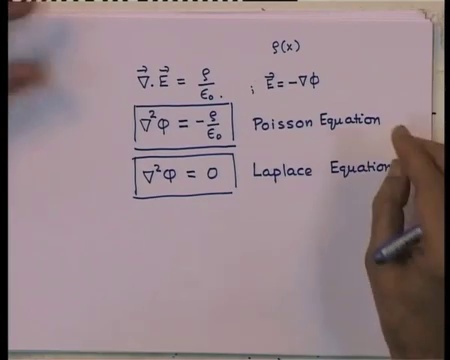 ρ(x)
∇⃗.E⃗ = ρ/ε₀. ; E⃗ = -∇Φ
∇²Φ = -ρ/ε₀ Poisson Equation
∇²Φ = 0 Laplace Equation